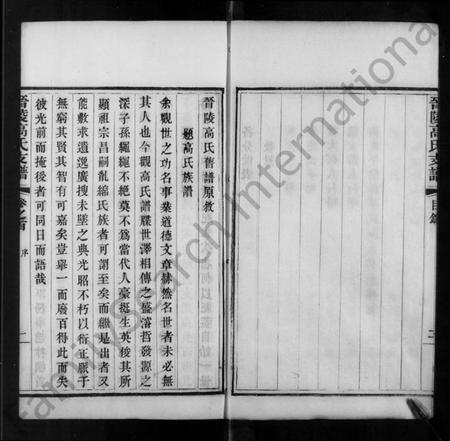 晉陵高氏支譜
目錄
二
晉陵高氏舊譜原敘
題高氏族譜
余觀世之功名事業道德文章赫然名世者未必無
其人也今觀高氏譜牒世澤相傳之盛濬哲發源之
深子孫繩繩不絕莫不為當代人豪挺生英俊其所
顯祖宗昌嗣胤綿氏族者可謂至矣而繼是出者又
能敷求遺逸廣搜未墜之典光昭不朽以衍正脈于
無窮其賢其智有可嘉矣豈舉一而廢百得此而失
彼光前而掩後者可同日而語哉
晉陵高氏支譜
卷之首
序
一
FamilySearch International